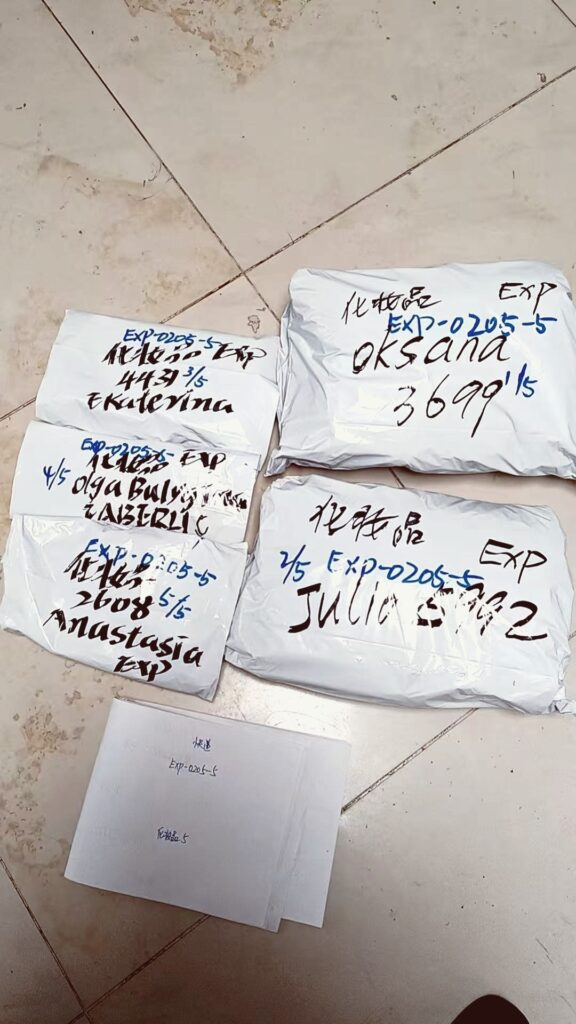 化妆品 EXP
EXP-0205-5
oksana
3699 1/5
EXP-0205-5
化妆品 EXP
3/5
Ekaterina
EXP-0205-5
化妆品 EXP
4/5
Olga
化妆品
EXP
2/5 EXP-0205-5
Julia
EXP-0205-5
化妆品
2608 5/5
Anastasia
EXP
快递
EXP-0205-5
化妆品 5